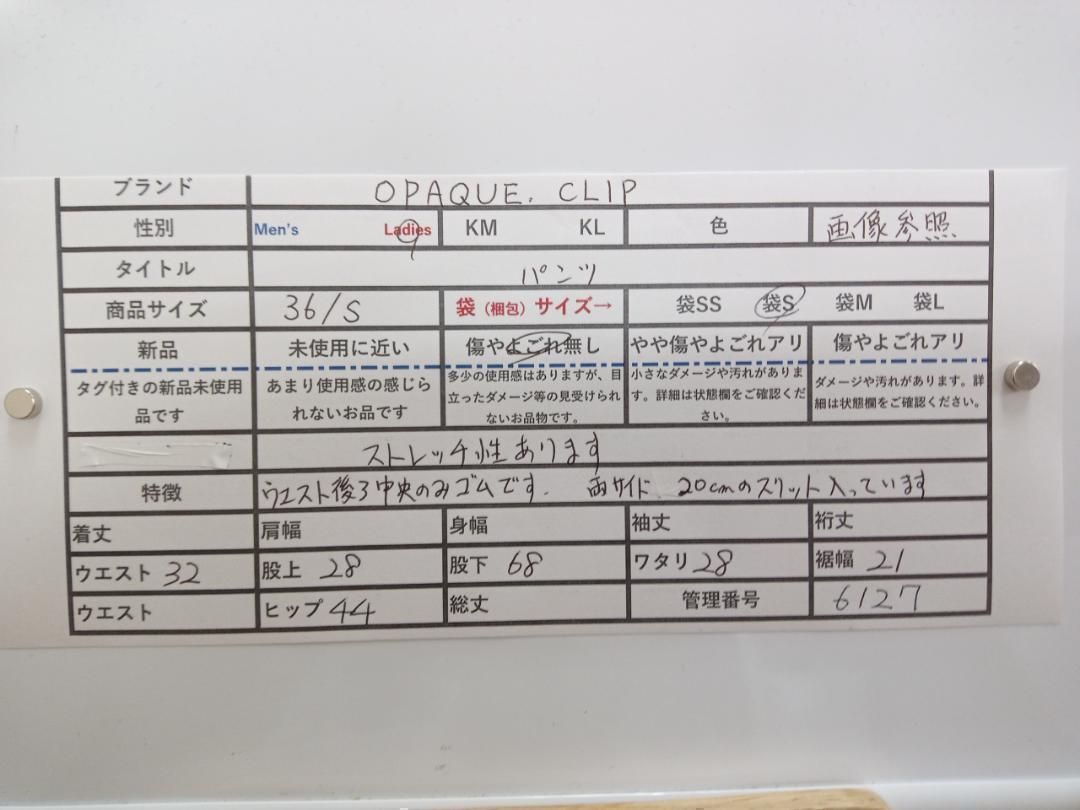 ブランド OPAQUE. CLIP
性別 Men's Ladies KM KL 色 画像参照
タイトル パンツ
商品サイズ 36/S 袋（梱包）サイズ→ 袋SS 袋S 袋M 袋L
新品 未使用に近い 傷やよごれ無し やや傷やよごれアリ 傷やよごれアリ
タグ付きの新品未使用
品です
あまり使用感の感じら
れないお品です
多少の使用感はありますが、目
立ったダメージ等の見受けられ
ないお品物です。
小さなダメージや汚れがありま
す。詳細は状態欄をご確認くだ
さい。
ダメージや汚れがあります。詳
細は状態欄をご確認ください。
ストレッチ性あります
特徴 ウエスト後ろ中央のみゴムです. 両サイド、20cmのスリット入っています
着丈 肩幅 身幅 袖丈 裄丈
ウエスト 32 股上 28 股下 68 ワタリ 28 裾幅 21
ウエスト ヒップ 44 総丈 管理番号 6127